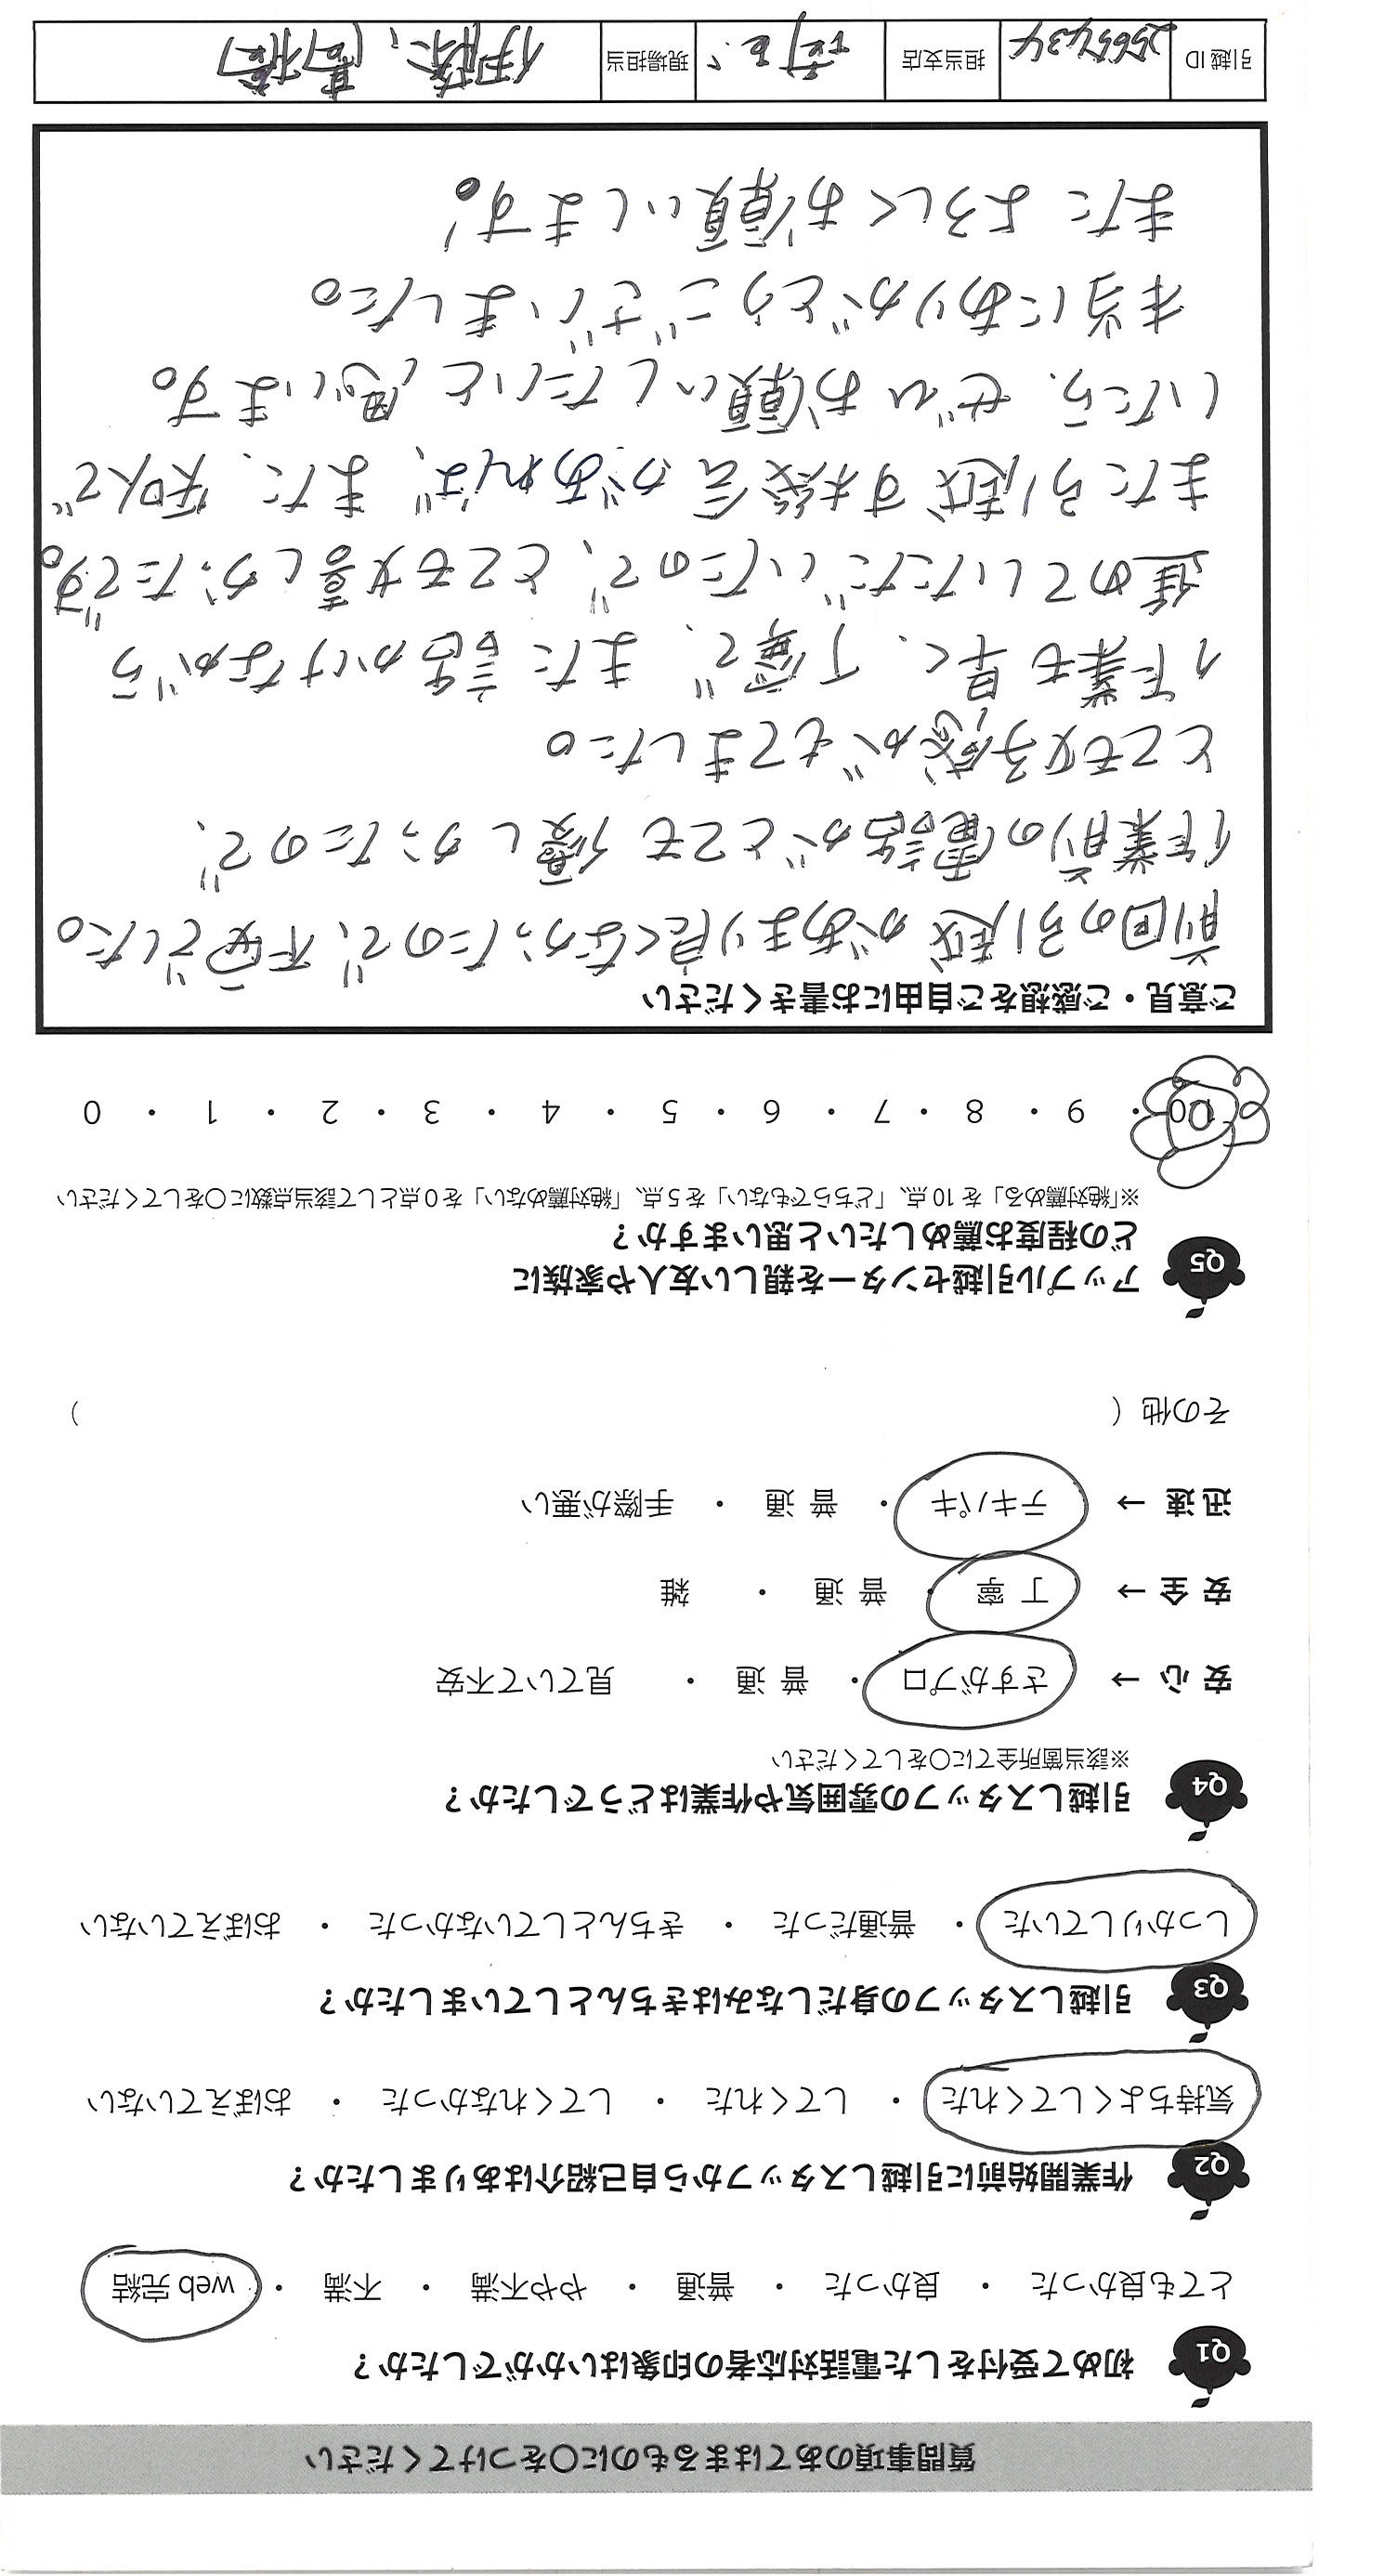 質問事項のあてはまるものに○をつけてください
Q1 初めて受付をした電話対応者の印象はいかがでしたか？
とても良かった ・ 良かった ・ 普通 ・ やや不満 ・ 不満 ・ web 完結
Q2 作業開始前に引越しスタッフから自己紹介はありましたか？
気持ちよくしてくれた ・ してくれた ・ してくれなかった ・ おぼえていない
Q3 引越しスタッフの身だしなみはきちんとしていましたか？
しっかりしていた ・ 普通だった ・ きちんとしていなかった ・ おぼえていない
Q4 引越しスタッフの雰囲気や作業はどうでしたか？
※該当箇所全てに○をしてください
安 心 → さすがプロ ・ 普 通 ・ 見ていて不安
安 全 → 丁 寧 ・ 普 通 ・ 雑
迅 速 → テキパキ ・ 普 通 ・ 手際が悪い
その他（ ）
Q5 アップル引越センターを親しい友人や家族に
どの程度お薦めしたいと思いますか？
※「絶対薦める」を 10 点、「どちらでもない」を 5 点、「絶対薦めない」を 0 点として該当点数に○をしてください
10 ・ 9 ・ 8 ・ 7 ・ 6 ・ 5 ・ 4 ・ 3 ・ 2 ・ 1 ・ 0
ご意見・ご感想をご自由にお書きください
前回の引越があまり良くなかったので、不安でした。
作業前の電話がとても優しかったので、
とても好感がもてました。
作業も早く、丁寧で、また話かけながら
進めていただいたので、とても嬉しかったです。
また引越す機会があれば、また、知人で
いたら、ぜひお願いしたいと思います。
本当にありがとうございました。
またよろしくお願いします！
引越 ID 2565434 担当支店 現場担当 伊藤、髙橋